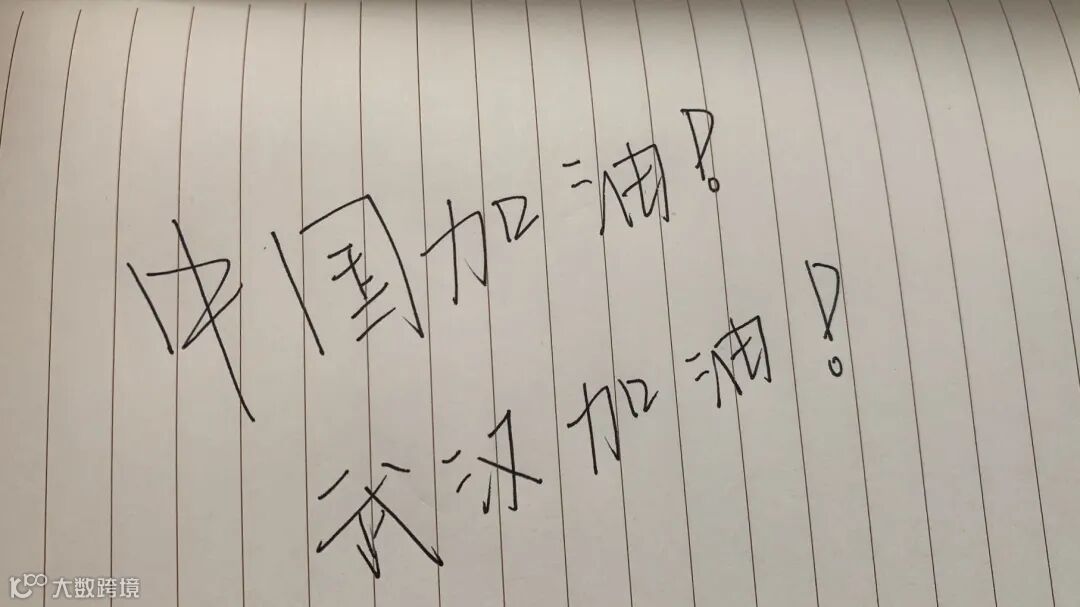 中国加油!
武汉加油!
大数跨境